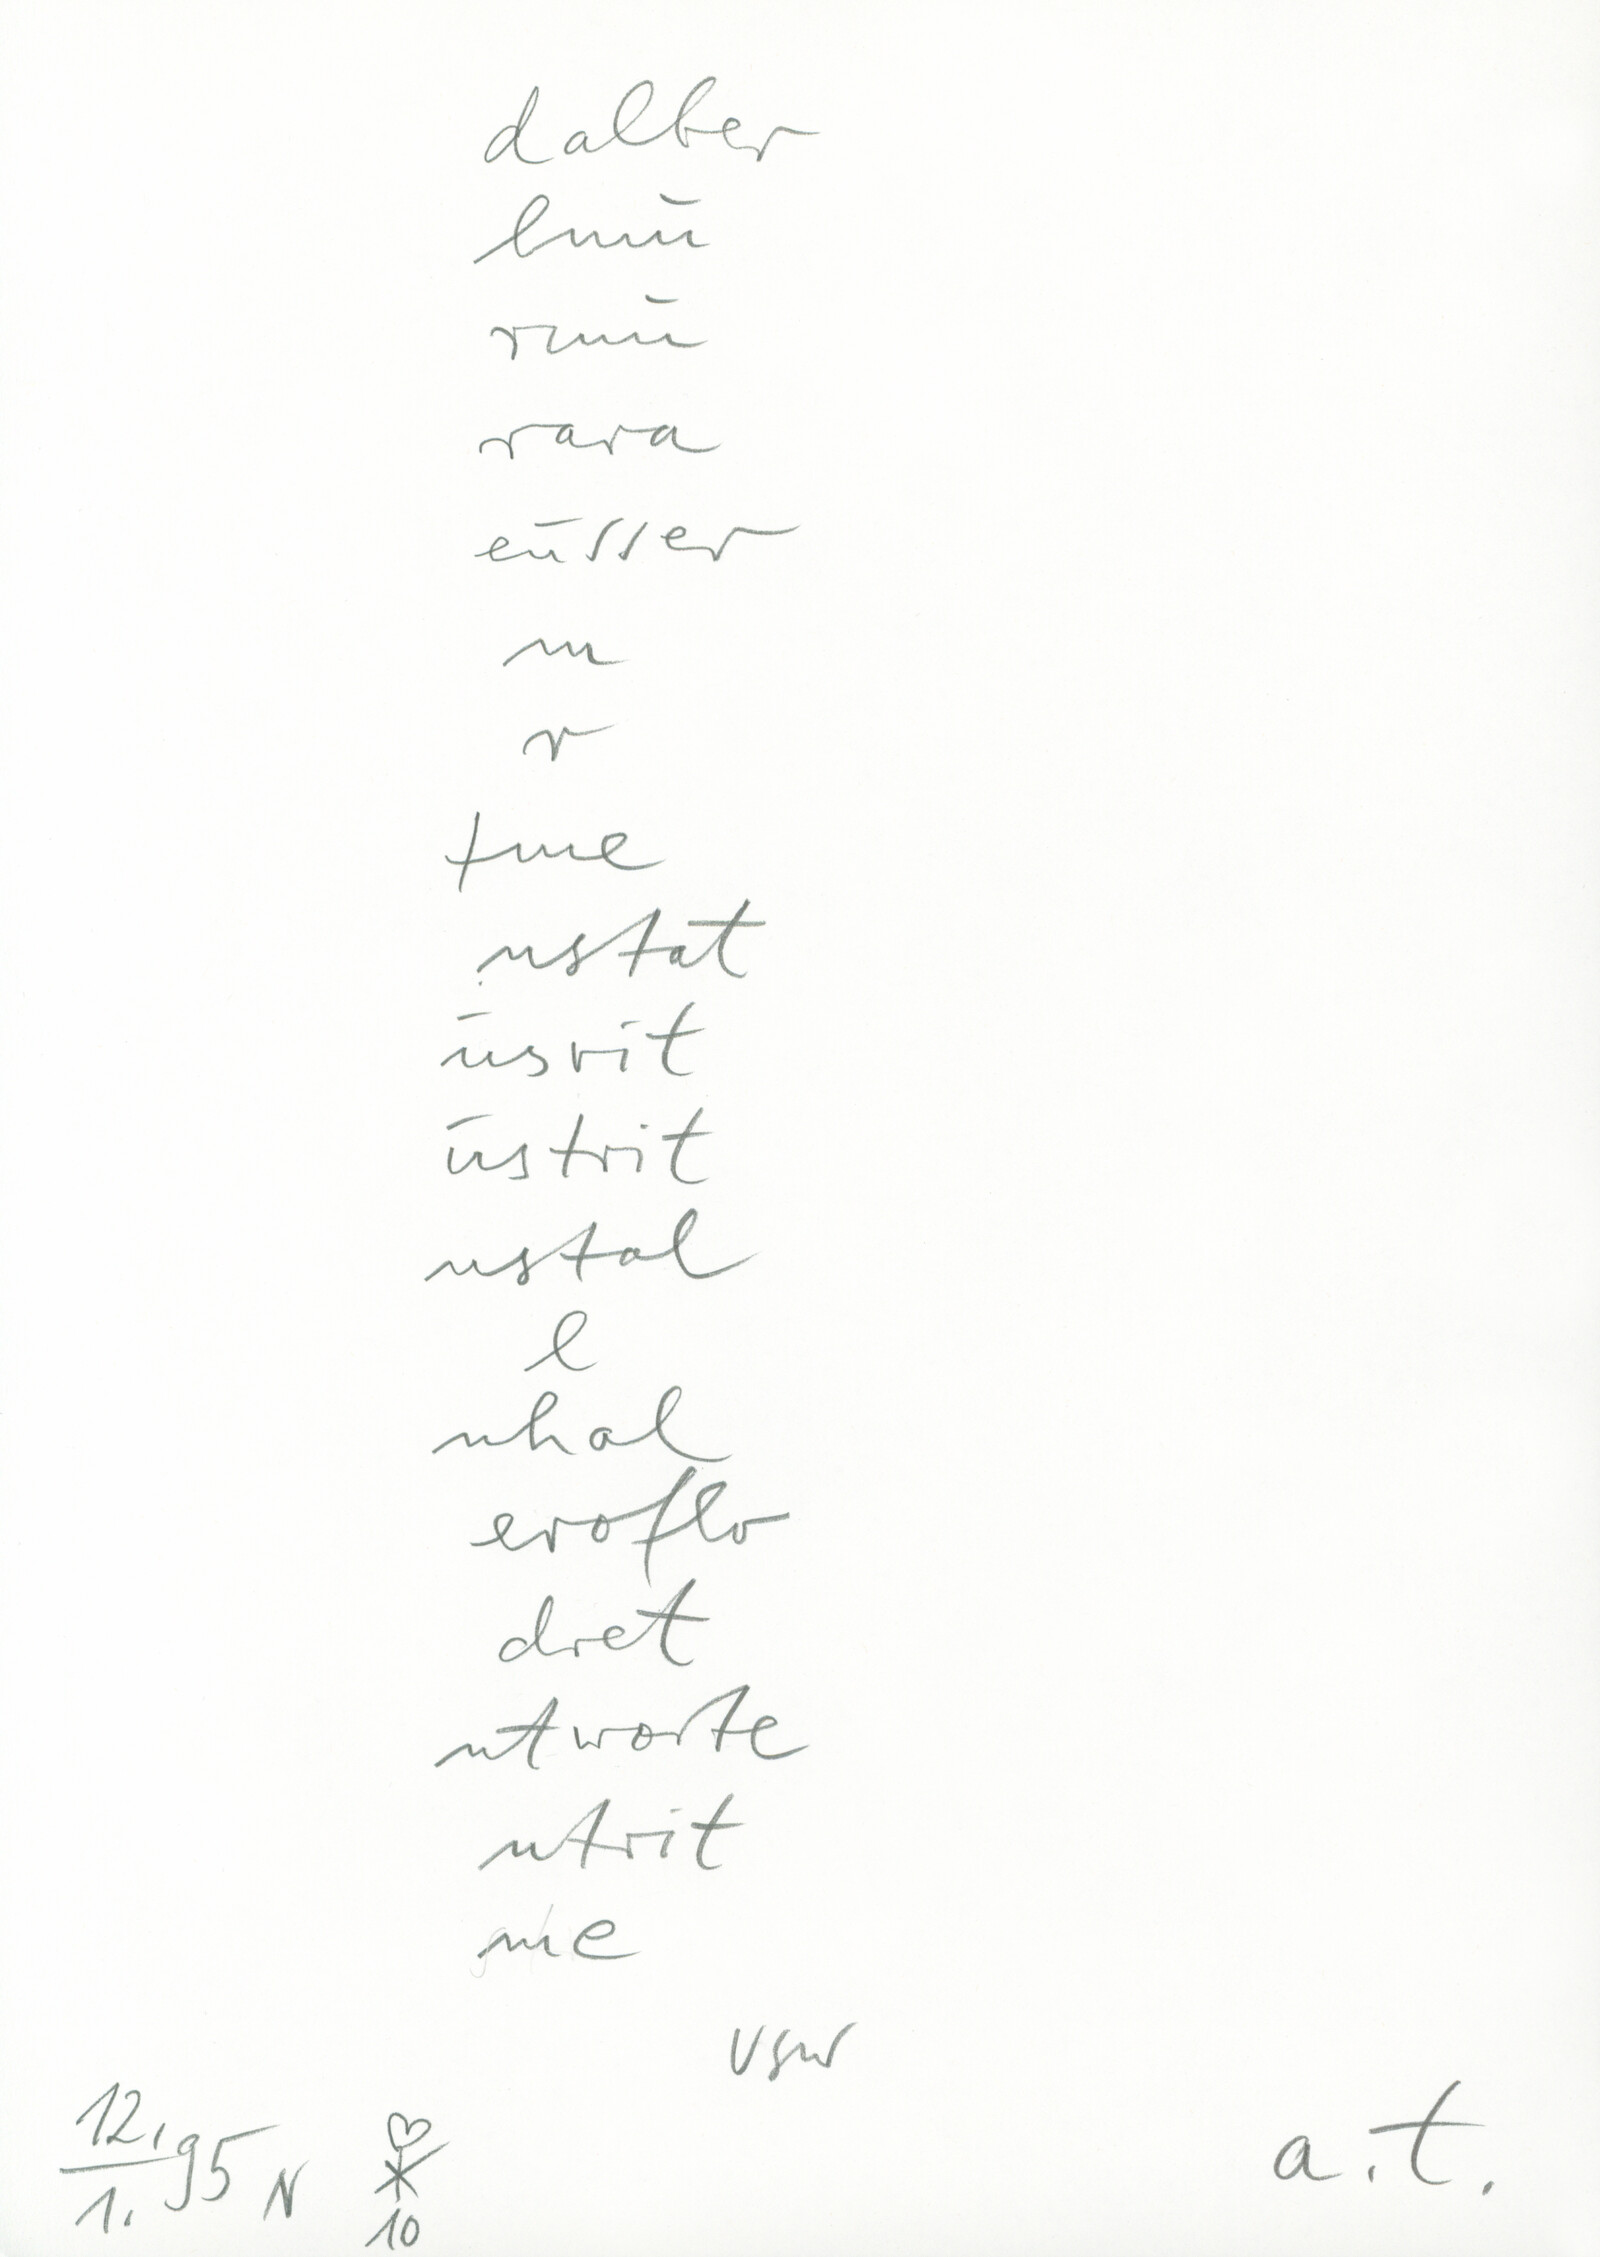 dalber
rara
eüsser
m
r
nstat
üsrit
üstrit
ustal
l
nhal
eroflo
dret
ntworte
ntrit
me
usw
12.
1. 95 N
10
a.t.